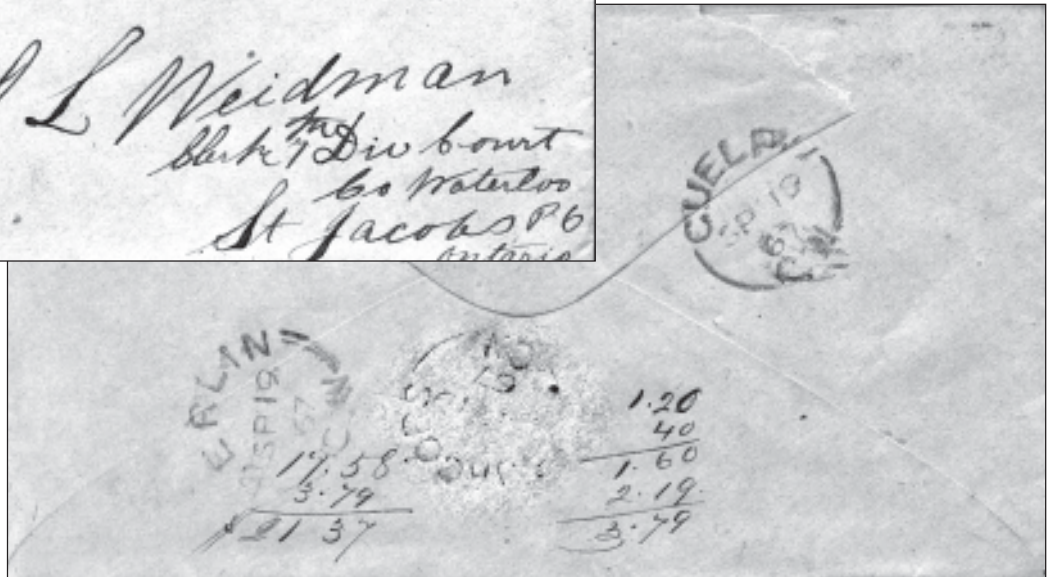 L Weidman
Clerk 7th Div Court
Co Waterloo
St Jacobs P O
Ontario
GUELPH
SP 19
67
ERLIN
SP 19
67
C W
17.58
3.79
$ 21 37
1.20
40
1.60
2.19.
3.79